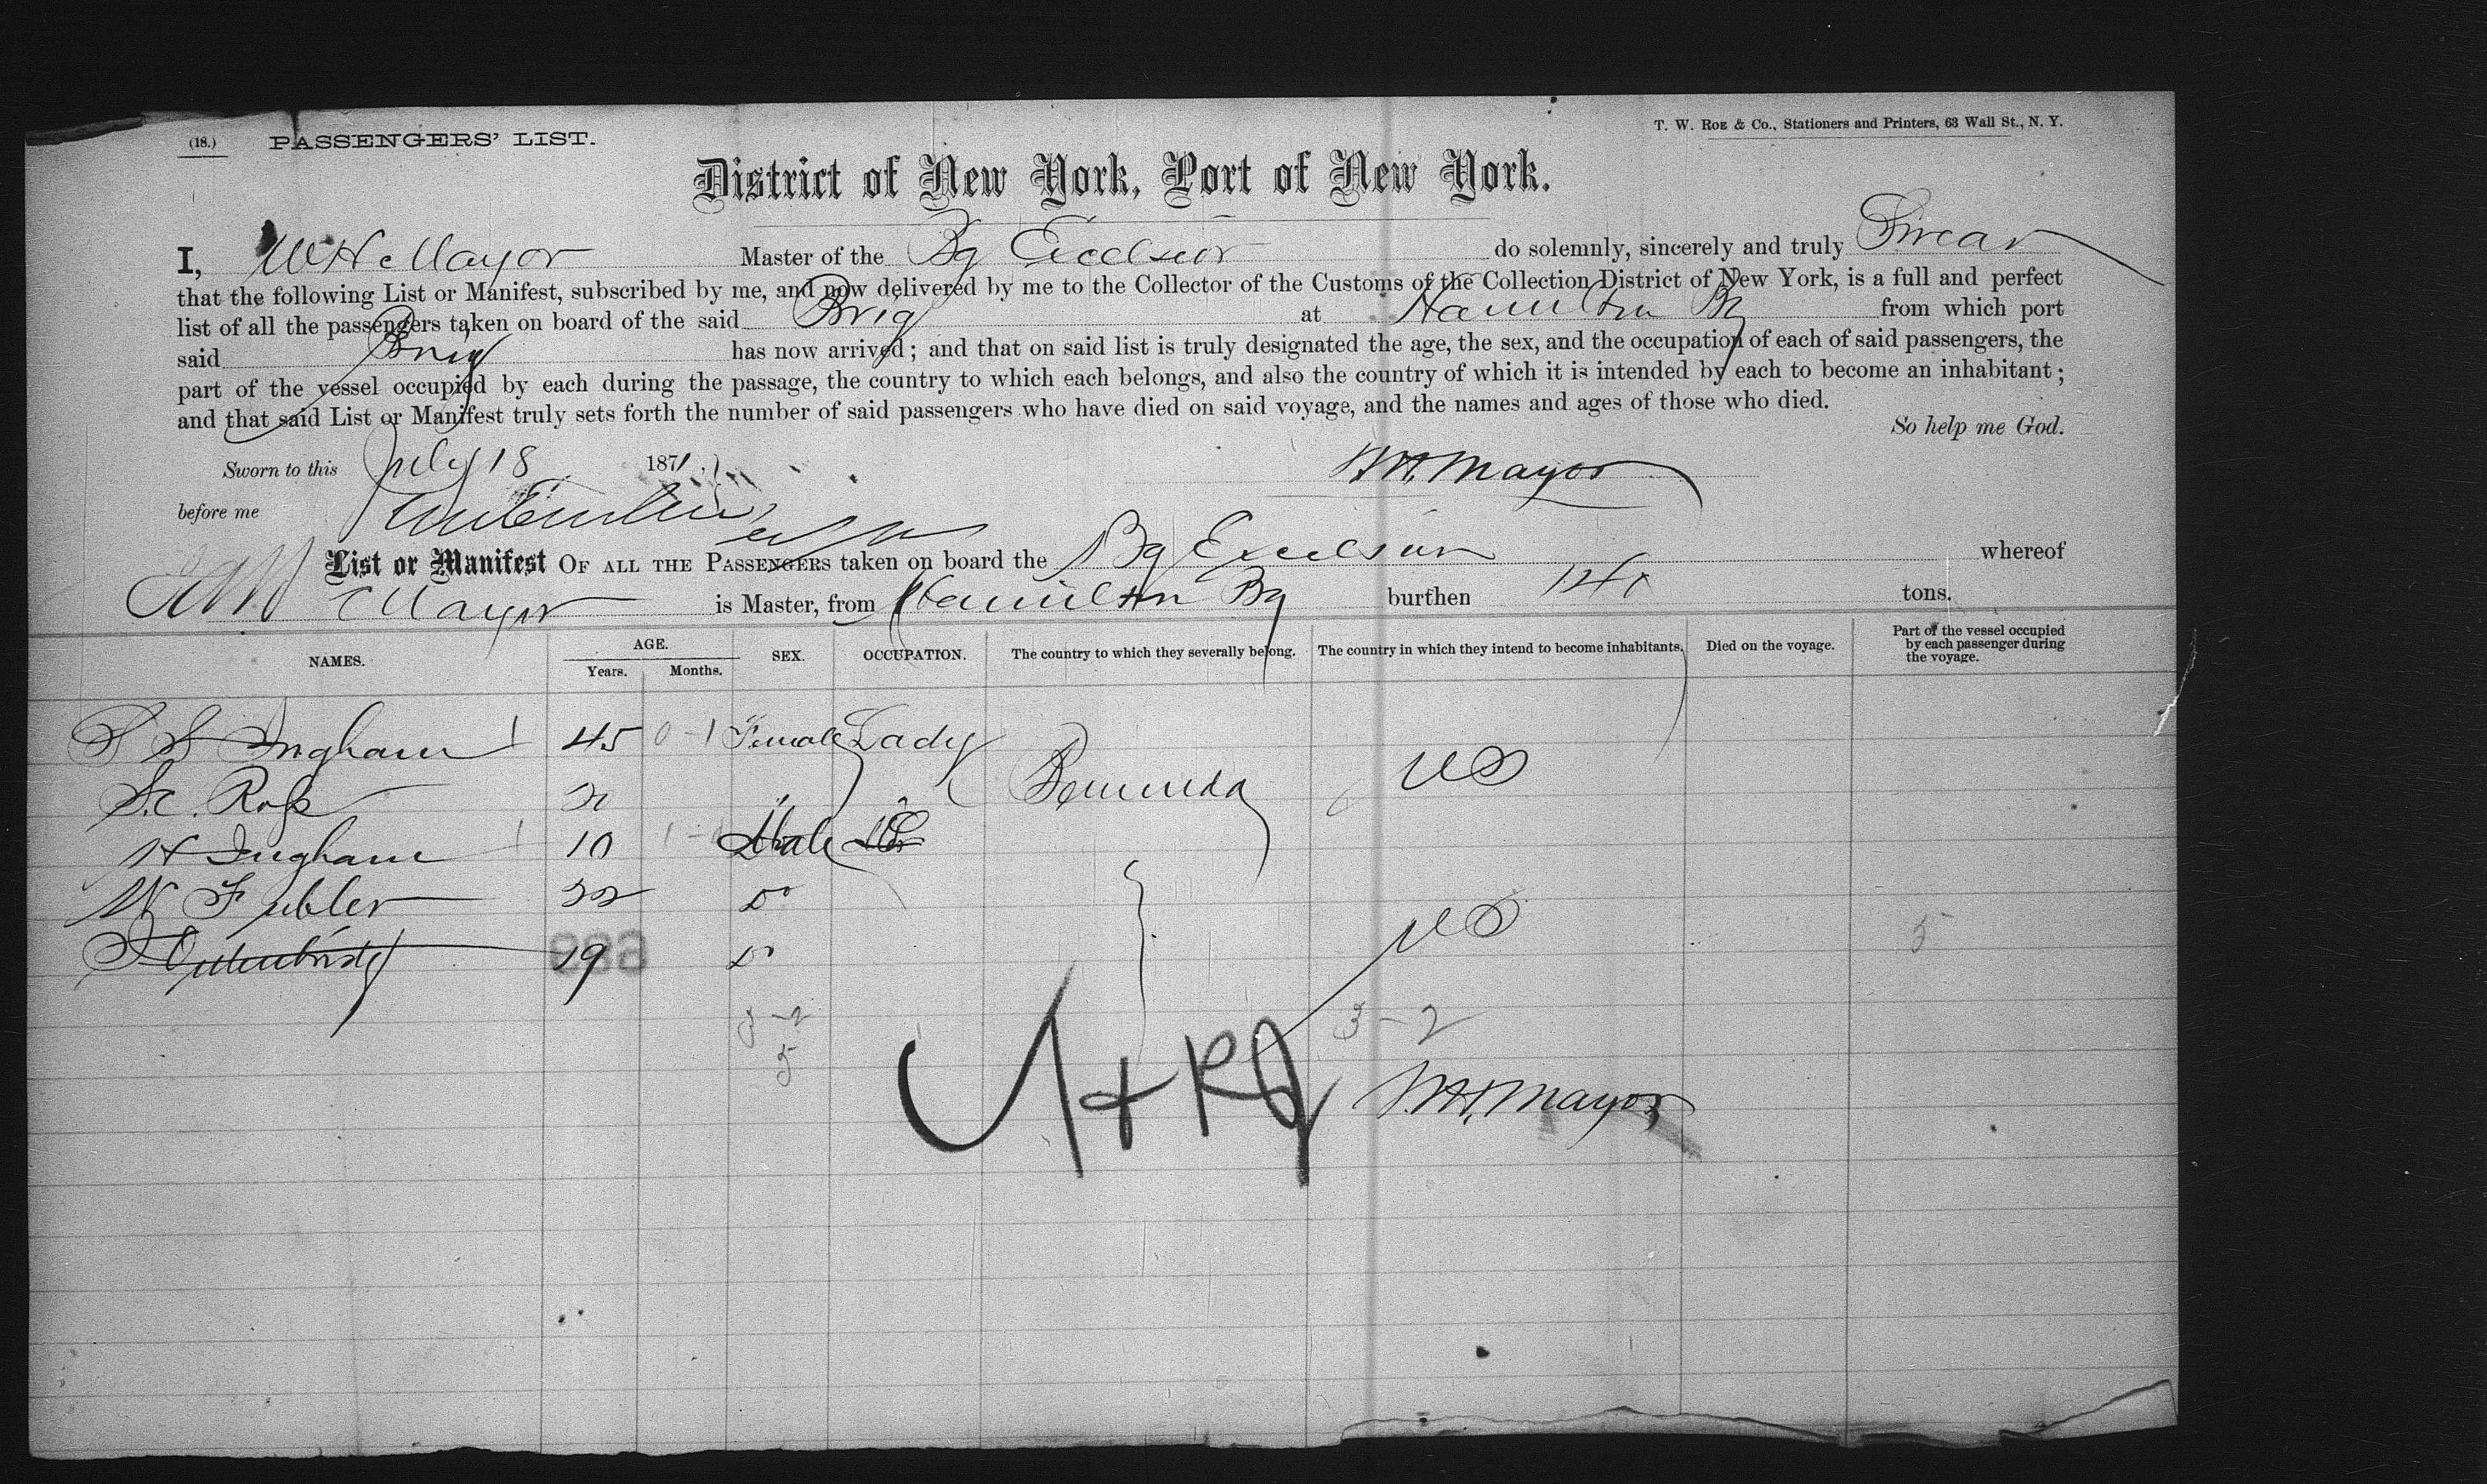 (18.) PASSENGERS' LIST.
T. W. Roe & Co., Stationers and Printers, 63 Wall St., N. Y.
District of New York, Port of New York.
I, W H Mayor Master of the Bg Excelsior do solemnly, sincerely and truly Swear
that the following List or Manifest, subscribed by me, and now delivered by me to the Collector of the Customs of the Collection District of New York, is a full and perfect
list of all the passengers taken on board of the said Brig at Hamilton Ba from which port
said Brig has now arrived; and that on said list is truly designated the age, the sex, and the occupation of each of said passengers, the
part of the vessel occupied by each during the passage, the country to which each belongs, and also the country of which it is intended by each to become an inhabitant;
and that said List or Manifest truly sets forth the number of said passengers who have died on said voyage, and the names and ages of those who died.
So help me God.
Sworn to this July 18 1871. W.H. Mayor
before me
List or Manifest OF ALL THE PASSENGERS taken on board the Bg Excelsior whereof
Mayor is Master, from Hamilton Ba burthen tons.
NAMES. AGE. Years. Months. SEX. OCCUPATION. The country to which they severally belong. The country in which they intend to become inhabitants. Died on the voyage. Part of the vessel occupied by each passenger during the voyage.
S S Ingham 1 45 0-1 Female Lady
S.C. Ross " " Bermuda US
H Ingham 1 10 Male
W F 22 Do
19 Do US 5
3-2 3-2
5
W.H. Mayor